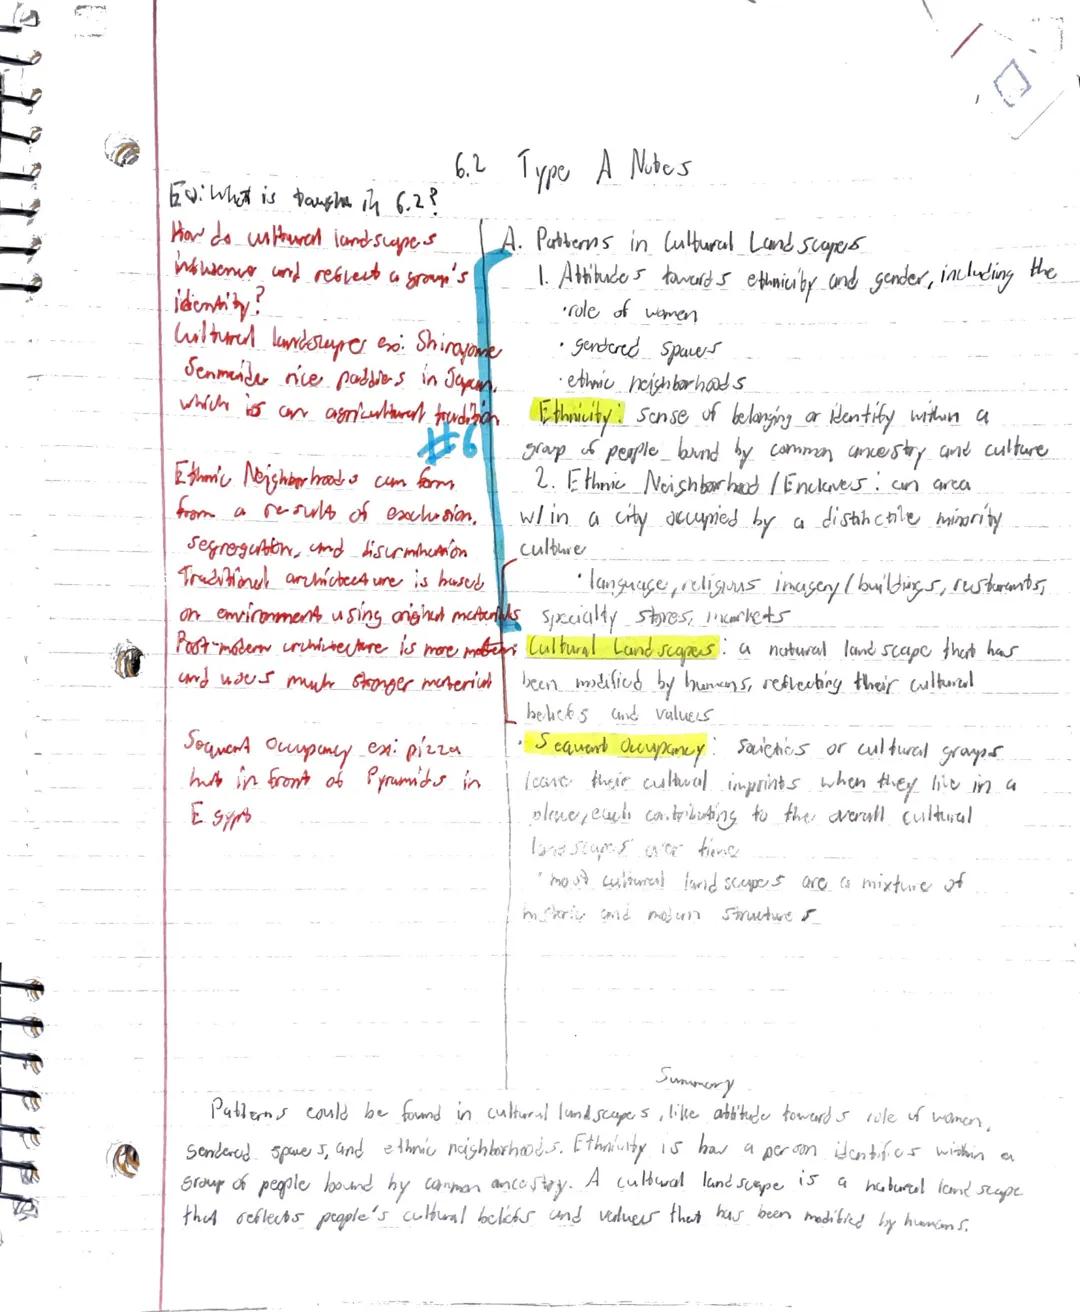 6.2 Type A Notes
EQ: What is taught in 6.2?
How do cultural landscapes
influence and reflect a group's
identity?
Cultural landscapes ex: Shiroyone
Senmaida rice paddies in Japan.
which is an agricultural tradition
#6
Ethnic Neighborhoods can form
from a result of exclusion,
segregation, and discrimination
Traditional architecture is based
on environment using original materials
Post-modern architecture is more modern
and uses much stronger material
Sequent Occupancy ex: pizza
hut in front of Pyramids in
Egypt
A. Patterns in Cultural Landscapes
1. Attitudes towards ethnicity and gender, including the
· role of women
· gendered spaces
· ethnic neighborhoods
Ethnicity: sense of belonging or identify within a
group of people bound by common ancestry and culture
2. Ethnic Neighborhood / Enclaves: an area
w/in a city occupied by a distinctive minority
culture
· language, religious imagery / buildings, restaurants,
specialty stores, markets
Cultural Landscapes: a natural landscape that has
been modified by humans, reflecting their cultural
beliefs and values
· Sequent Occupancy: Societies or cultural groups
leave their cultural imprints when they live in a
place, each contributing to the overall cultural
landscapes over time
· most cultural landscapes are a mixture of
historic and modern structures
Summary
Patterns could be found in cultural landscapes, like attitude towards role of women,
gendered spaces, and ethnic neighborhoods. Ethnicity is how a person identifies within a
group of people bound by common ancestry. A cultural landscape is a natural landscape
that reflects people's cultural beliefs and values that has been modified by humans.